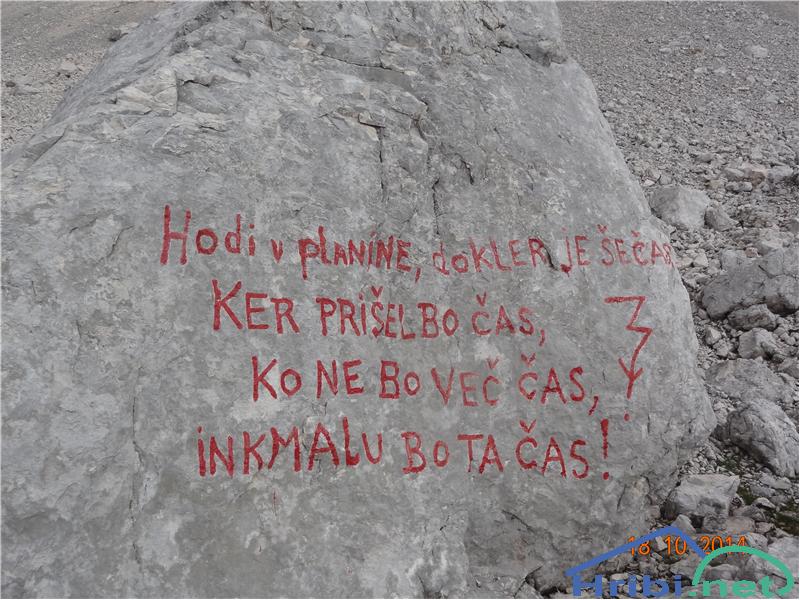 Hodi v PLANINE, dOKLER JE ŠE ČAS,
KER PRIŠEL BO ČAS,
KO NE BO VEČ ČAS,
iN KMALU BO TA ČAS!
18 10 2014
Hribi.net